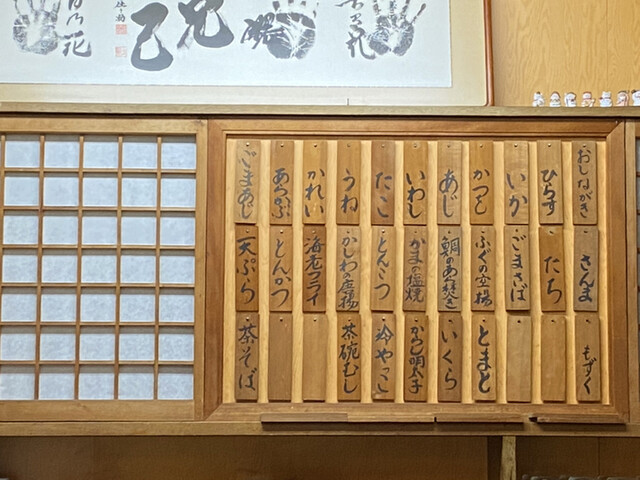 おしながき
ひらす
いか
かつお
あじ
いわし
たこ
うね
かれい
あらかぶ
ごまあじ
さんま
たち
ごまさば
ふぐの空揚
鯛のあら焚き
かまの塩焼
とんこつ
かしわの唐揚
海老フライ
とんかつ
天ぷら
もずく
とまと
いくら
からし明太子
冷やっこ
茶碗むし
茶そば